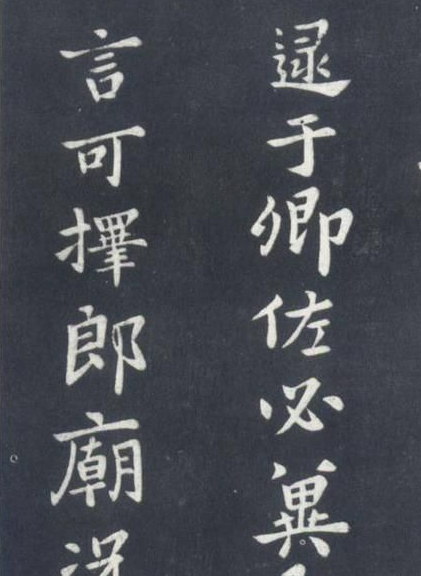 逮于卿佐必冀
言可擇郎廟